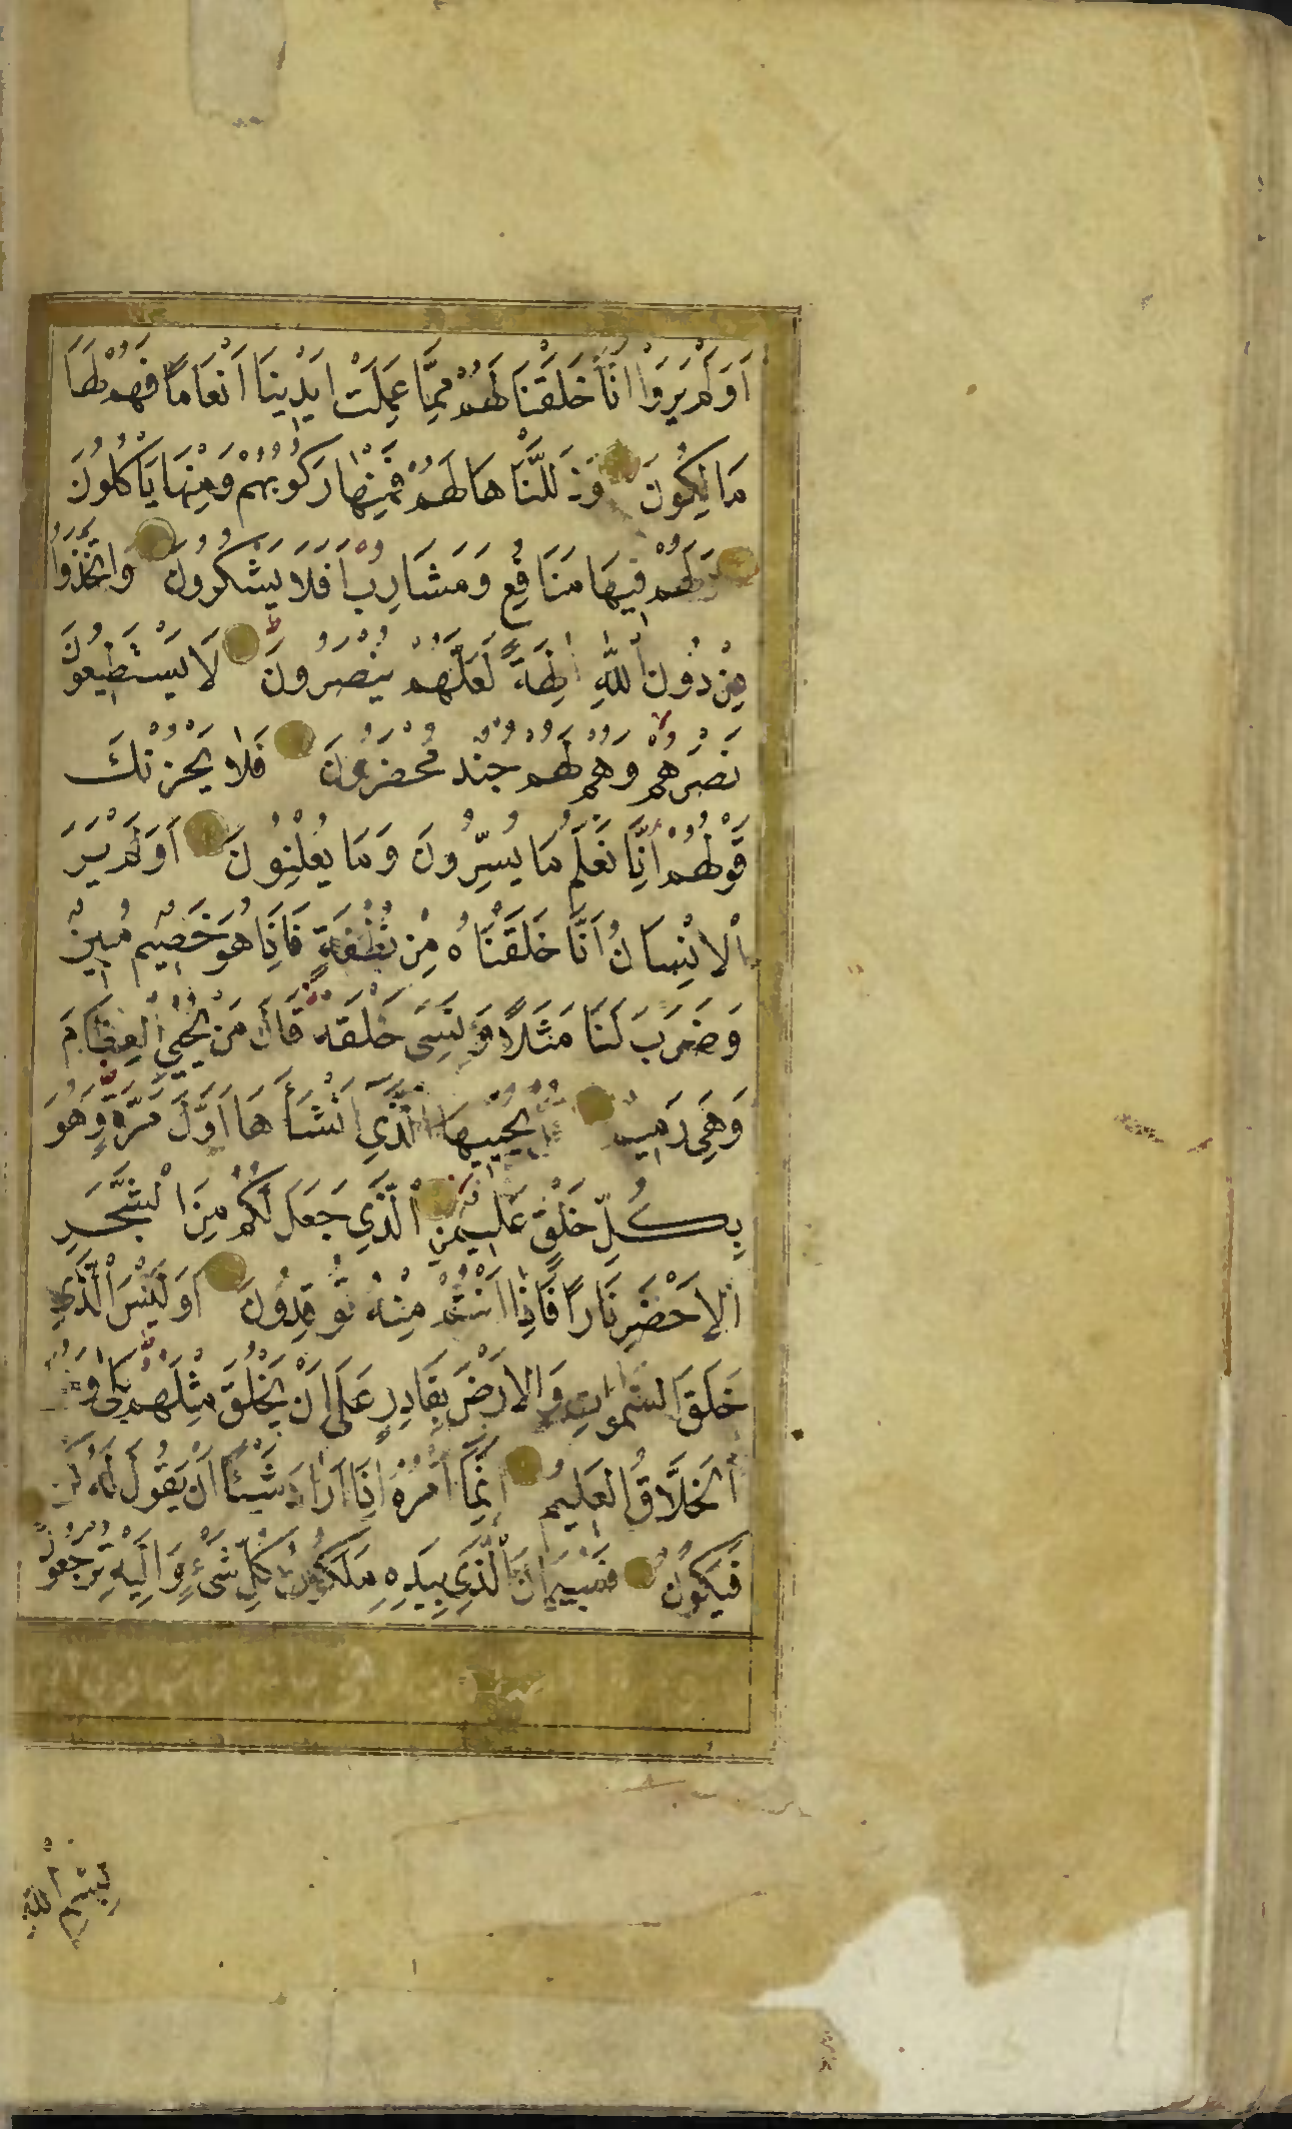 اَوَلَمْ يَرَوْا اَنَّا خَلَقْنَا لَهُمْ مِمَّا عَمِلَتْ اَيْدِينَا اَنْعَامًا فَهُمْ لَهَا
مَالِكُونَ وَذَلَّلْنَاهَا لَهُمْ فَمِنْهَا رَكُوبُهُمْ وَمِنْهَا يَاْكُلُونَ
وَلَهُمْ فِيهَا مَنَافِعُ وَمَشَارِبُ اَفَلَا يَشْكُرُونَ وَاتَّخَذُوا
مِنْ دُونِ اللّٰهِ اٰلِهَةً لَعَلَّهُمْ يُنْصَرُونَ لَا يَسْتَطِيعُونَ
نَصْرَهُمْ وَهُمْ لَهُمْ جُنْدٌ مُحْضَرُونَ فَلَا يَحْزُنْكَ
قَوْلُهُمْ اِنَّا نَعْلَمُ مَا يُسِرُّونَ وَمَا يُعْلِنُونَ اَوَلَمْ يَرَ
الْاِنْسَانُ اَنَّا خَلَقْنَاهُ مِنْ نُطْفَةٍ فَاِذَا هُوَ خَصِيمٌ مُبِينٌ
وَضَرَبَ لَنَا مَثَلًا وَنَسِيَ خَلْقَهُ قَالَ مَنْ يُحْيِي الْعِظَامَ
وَهِيَ رَمِيمٌ يُحْيِيهَا الَّذِي اَنْشَأَهَا اَوَّلَ مَرَّةٍ وَهُوَ
بِكُلِّ خَلْقٍ عَلِيمٌنِ الَّذِي جَعَلَ لَكُمْ مِنَ الشَّجَرِ
الْاَخْضَرِ نَارًا فَاِذَا اَنْتُمْ مِنْهُ تُوقِدُونَ اَوَلَيْسَ الَّذِي
خَلَقَ السَّمٰوَاتِ وَالْاَرْضَ بِقَادِرٍ عَلَى اَنْ يَخْلُقَ مِثْلَهُمْ بَلَى وَهُوَ
الْخَلَّاقُ الْعَلِيمُ اِنَّمَا اَمْرُهُ اِذَا اَرَادَ شَيْئًا اَنْ يَقُولَ لَهُ كُنْ
فَيَكُونُ فَسُبْحَانَ الَّذِي بِيَدِهِ مَلَكُوتُ كُلِّ شَيْءٍ وَاِلَيْهِ تُرْجَعُونَ
بِسْمِ اللّٰهِ